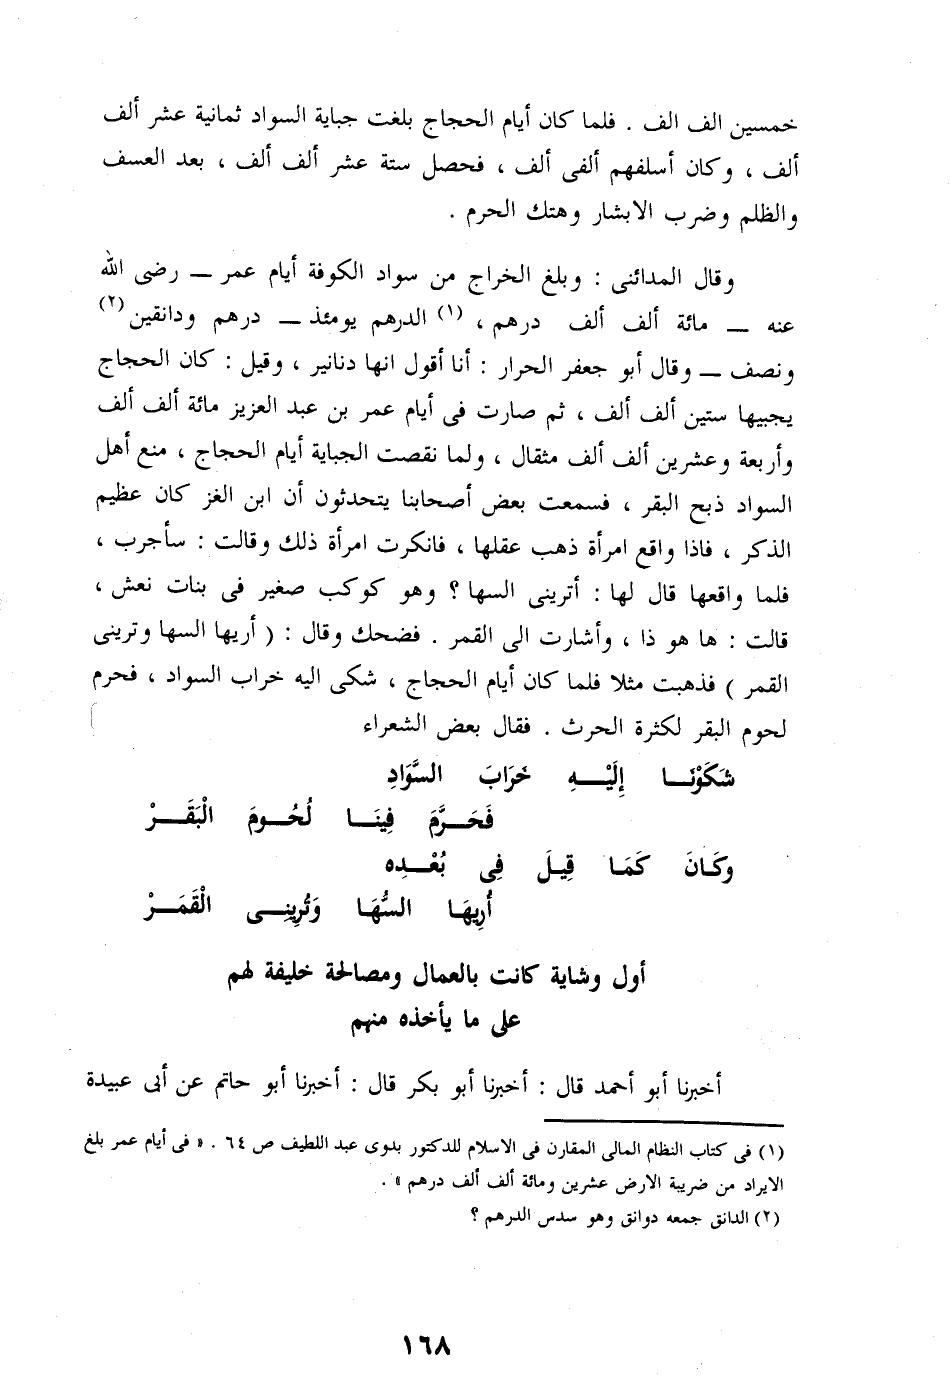 خمسين الف الف . فلما كان أيام الحجاج بلغت جباية السواد ثمانية عشر ألف
ألف ، وكان أسلفهم ألفى ألف ، فحصل ستة عشر ألف ألف ، بعد العسف
والظلم وضرب الابشار وهتك الحرم .
وقال المدائنى : وبلغ الخراج من سواد الكوفة أيام عمر — رضى الله
عنه — مائة ألف ألف درهم ، (١) الدرهم يومئذ — درهم ودانقين (٢)
ونصف — وقال أبو جعفر الحرار : أنا أقول انها دنانير ، وقيل : كان الحجاج
يجبيها ستين ألف ألف ، ثم صارت فى أيام عمر بن عبد العزيز مائة ألف ألف
وأربعة وعشرين ألف ألف مثقال ، ولما نقصت الجباية أيام الحجاج ، منع أهل
السواد ذبح البقر ، فسمعت بعض أصحابنا يتحدثون أن ابن الغز كان عظيم
الذكر ، فاذا واقع امرأة ذهب عقلها ، فانكرت امرأة ذلك وقالت : سأجرب ،
فلما واقعها قال لها : أترينى السها ؟ وهو كوكب صغير فى بنات نعش ،
قالت : ها هو ذا ، وأشارت الى القمر . فضحك وقال : ( أريها السها وترينى
القمر ) فذهبت مثلا فلما كان أيام الحجاج ، شكى اليه خراب السواد ، فحرم
لحوم البقر لكثرة الحرث . فقال بعض الشعراء
شَكَوْنَا إِلَيْهِ خَرَابَ السَّوَادِ
فَحَرَّمَ فِينَا لُحُومَ الْبَقَرْ
وَكَانَ كَمَا قِيلَ فِى بُعْدِه
أُرِيهَا السُّهَا وَتُرِينِى الْقَمَرْ
أول وشاية كانت بالعمال ومصالحة خليفة لهم
على ما يأخذه منهم
أخبرنا أبو أحمد قال : أخبرنا أبو بكر قال : أخبرنا أبو حاتم عن أبى عبيدة
(١) فى كتاب النظام المالى المقارن فى الاسلام للدكتور بدوى عبد اللطيف ص ٦٤ . « فى أيام عمر بلغ
الايراد من ضريبة الارض عشرين ومائة ألف ألف درهم » .
(٢) الدانق جمعه دوانق وهو سدس الدرهم ؟
١٦٨